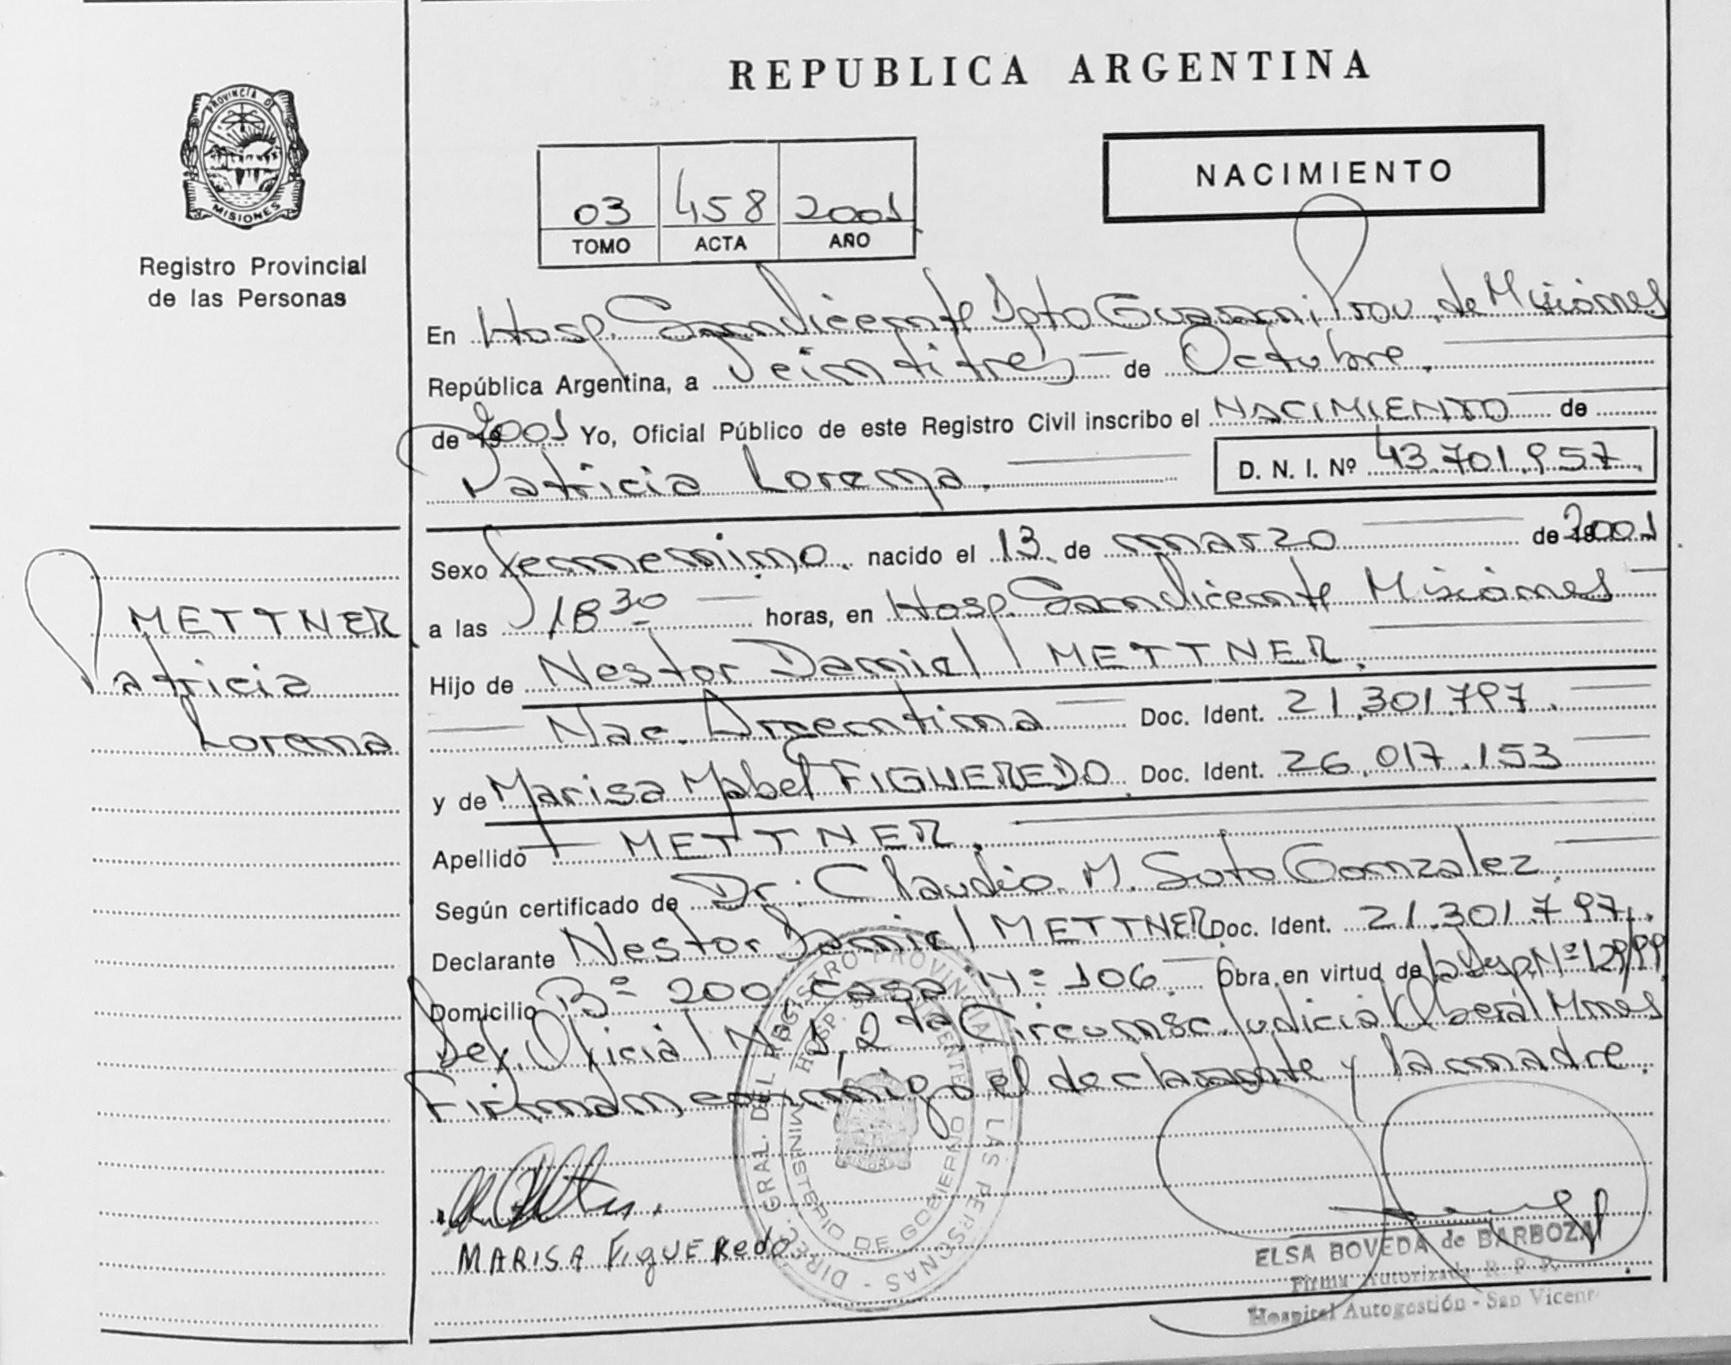 REPUBLICA ARGENTINA
PROVINCIA DE
MISIONES
Registro Provincial
de las Personas
03 458 2001
TOMO ACTA AÑO
NACIMIENTO
En Hosp. San Vicente Dpto Guarani Prov. de Misiones
República Argentina, a Veintitres de Octubre.
de 2001 Yo, Oficial Público de este Registro Civil inscribo el NACIMIENTO de
Patricia Lorena. D. N. I. Nº 43.701.957.
Sexo femenino. nacido el 13 de marzo de 2001
a las 18 30 horas, en Hosp. San Vicente Misiones
Hijo de Nestor Daniel METTNER.
Nac. Argentina Doc. Ident. 21.301.797.
y de Marisa Mabel FIGUEREDO. Doc. Ident. 26.017.153
Apellido METTNER.
Según certificado de Dr. Claudio M. Soto Gonzalez.
Declarante Nestor Daniel METTNER Doc. Ident. 21.301.797.
Domicilio Bº 200, casa Nº 106. Obra en virtud de la Disp. Nº 129/99
Def. Oficial Nº 1, 2da Circunsc. Judicial Oberá Mnes
Firman conmigo el declarante y la madre.
METTNER
Patricia
Lorena
MARISA FIGUEREDO.
DIREC. GRAL. DEL REGISTRO PROVINCIAL DE LAS PERSONAS
HOSP. SAN VICENTE
MINISTERIO DE GOBIERNO
ELSA BOVEDA de BARBOZA
Firma Autorizada R. P. P.
Hospital Autogestión - San Vicente